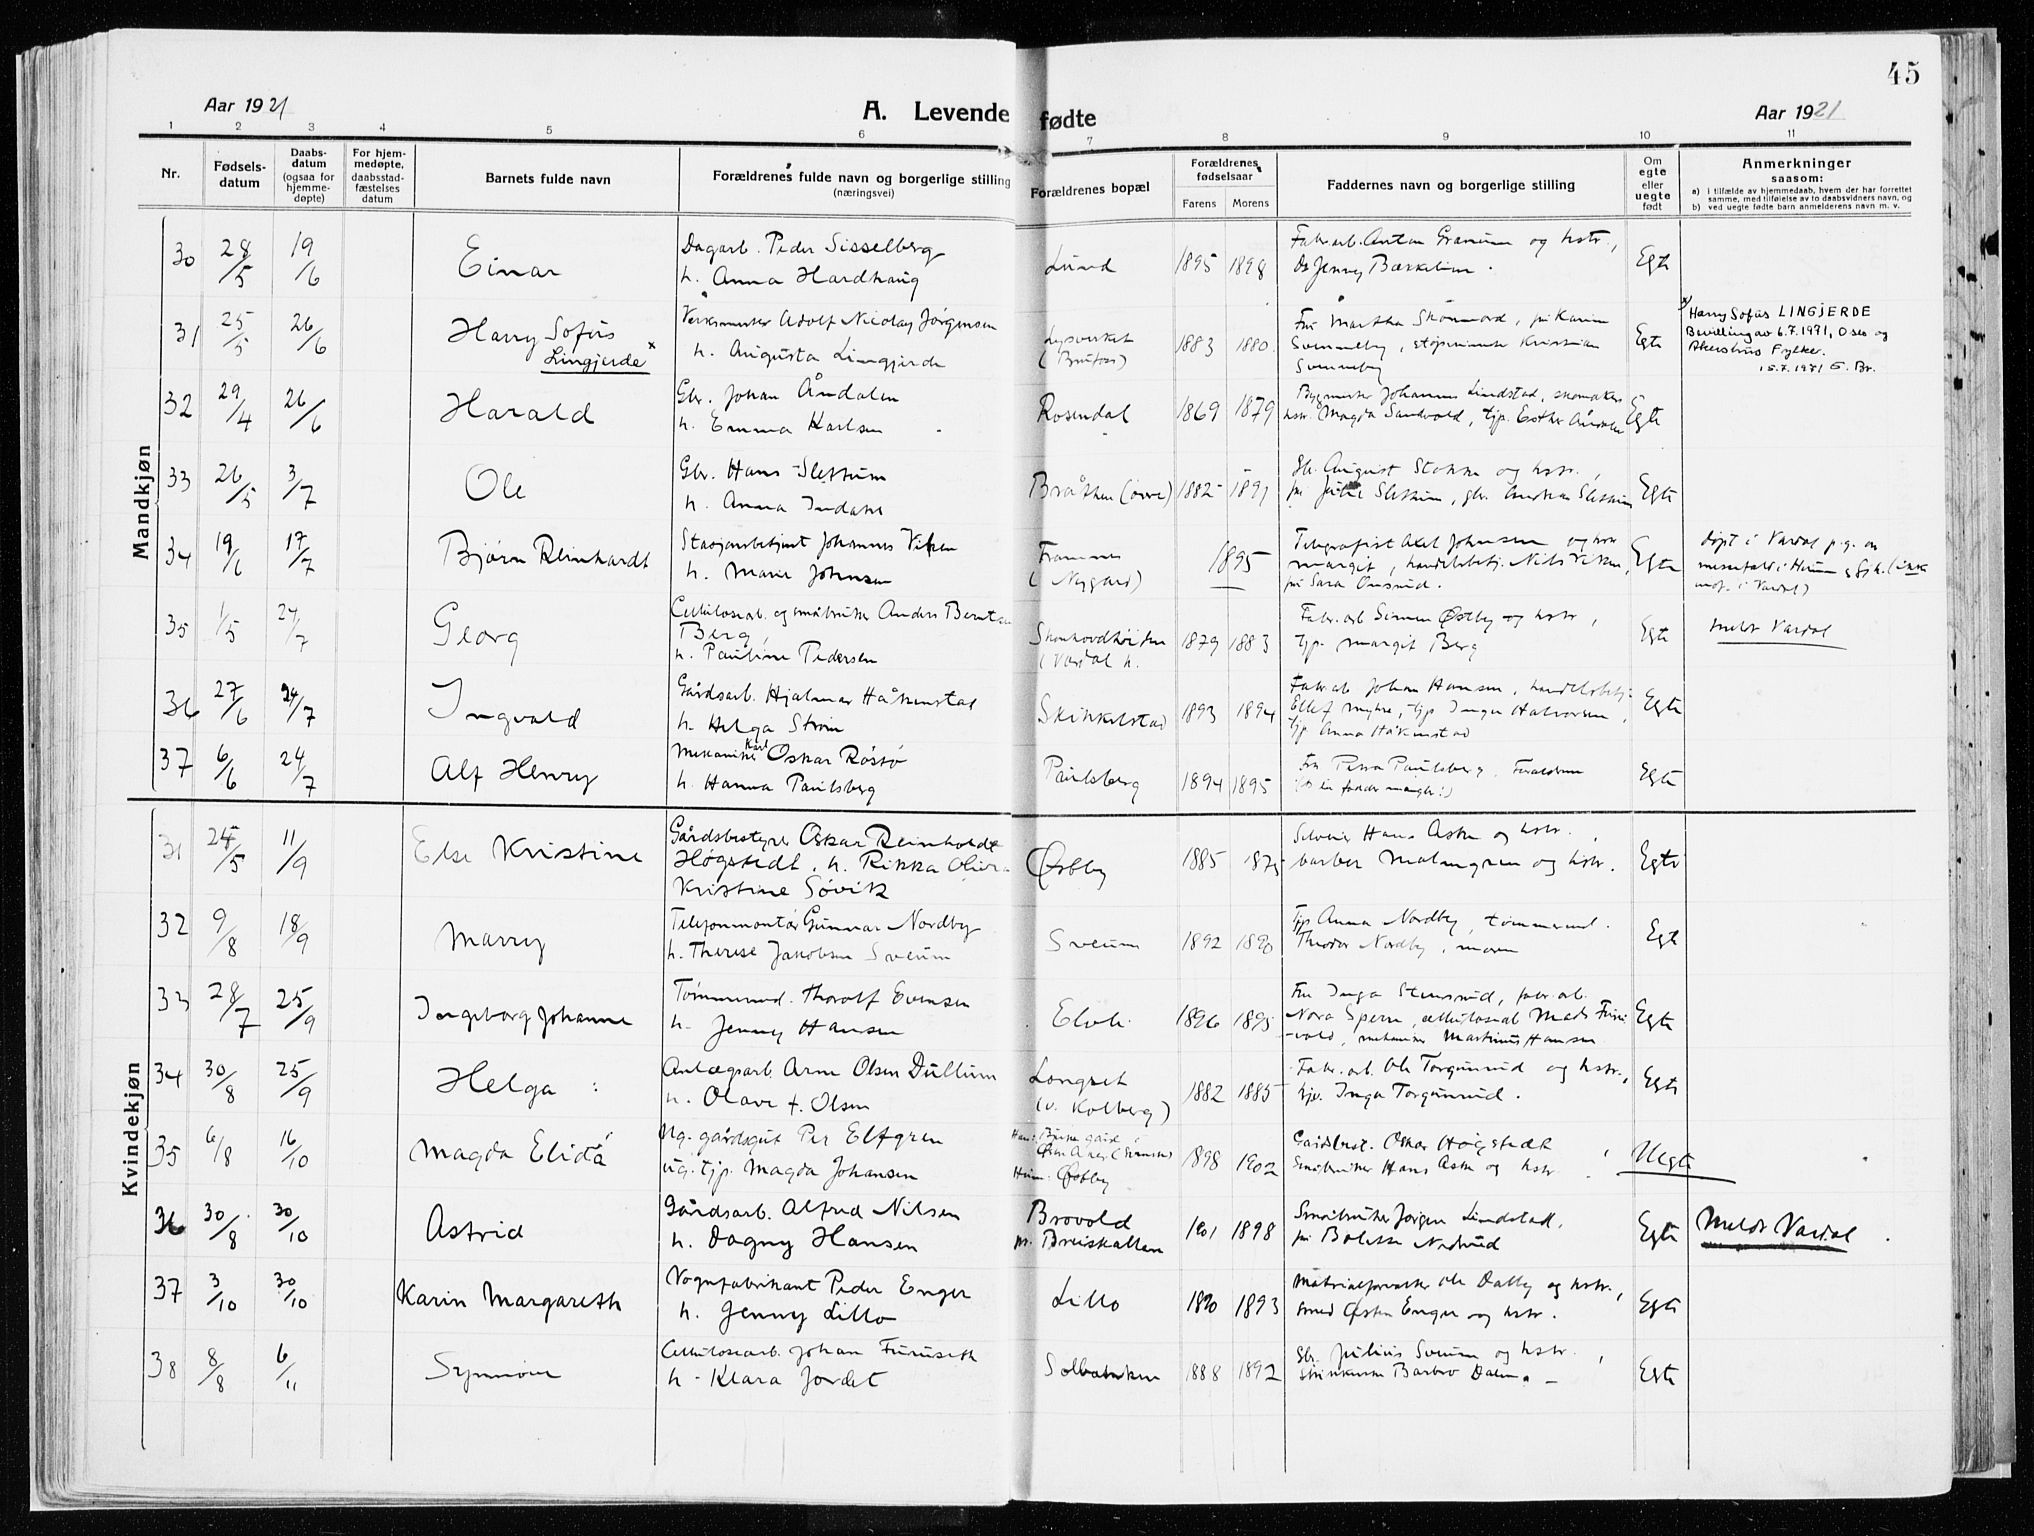 45
Aar 1921
A. Levende fødte
Aar 1921
1 2 3 4 5 6 7 8 9 10 11
Nr.
Fødsels-
datum
Daabs-
datum
(ogsaa for
hjemme-
døpte)
For hjem-
medøpte,
daabsstad-
fæstelses
datum
Barnets fulde navn
Forældrenes fulde navn og borgerlige stilling
(næringsvei)
Forældrenes bopæl
Forældrenes
fødselsaar
Farens Morens
Faddernes navn og borgerlige stilling
Om
egte
eller
uegte
født
Anmerkninger
saasom:
a) i tilfælde av hjemmedaab, hvem der har forrettet
samme, med tilføielse av to daabsvidners navn, og
b) ved uegte fødte barn anmelderens navn m. v.
Mandkjøn
30 28/5 19/6 Einar
Dagarb. Peder Sisselberg
h. Anna Hardhaug
Lund 1895 1898
Fabr.arb. Anton Granum og hstr.,
Jenny Bækkelien.
Egte
31 25/5 26/6 Harry Sofus
Lingjerde x
Verksmester Adolf Nicolay Jörgensen
h. Augusta Lingjerde
Lysverket
1883 1880
Fru Martha Skönnord, frk Karin
Sommeby, Kristian
Sommeby
Egte
x) Harry Sofus LINGJERDE
Bevilling av 6.7.1971, Oslo og
Akershus Fylker.
15.7.1971 E. Br.
32 29/4 26/6 Harald
Gbr. Johan Åndalen
h. Emma Karlsen
Rosendal 1869 1879
Bygmester Johannes Lindstad, skomakers
hstr. Magda Sandvold, tjp. Esther Åndalen
Egte
33 26/5 3/7 Ole
Gbr. Hans Slettum
h. Anna Indahl
Bråthen (övre) 1882 1891
Gbr. August Stokke og hstr.,
pi. Julie Slettum, gbr. Andreas Slettum
Egte
34 19/6 17/7 Bjørn Reinhardt
Stasjonsbetjent Johannes Viken
h. Marie Johnsen
Framnes
(Nygård)
1895
Telegrafist Axel Johnsen og hstr
Margit, handelsbetj. Nils Viken,
pi Sara Onsrud.
Egte
døpt i Vardal p.g. av
messefald i Hunn
35 1/5 24/7 Georg
Cellulosearb. og småbruker Anders Berntsen
Berg,
h. Pauline Pedersen
(Vardal h.
1879 1883
Fabr.arb Simen Østby og hstr,
tjp. Margit Berg
Egte
Meldt Vardal
36 27/6 24/7 Ingvald
Gårdsarb. Hjalmar Håkenstad
h. Helga Ström
Skinkelstad 1893 1894
Fabr.arb Johan Hansen, handelsbetj.
Ellef Myhre, tjp Inga Halvorsen,
tjp. Anna Håkenstad
Egte
37 6/6 24/7 Alf Henry
Mekaniker Karl Oskar Röstö
h. Hanna Paulsberg
Paulsberg 1894 1895
Fru Petra Paulsberg. Forældrene
(to fadder mangler!)
Egte
Kvindekjøn
31 24/5 11/9 Else Kristine
Gårdsbestyrer Oskar Reinholdt
Høgstedt, h. Rikka Olivia
Kristine Sövik
Østby 1885 1875
Selveier Hans Aske og hstr.,
barber Malmgren og hstr.
Egte
32 9/8 18/9 Marry
Telefonmontör Gunnar Nordby
h. Therese Jakobsen Sveum
Sveum 1892 1890
Tjp Anna Nordby, tömmermd.
Theodor Nordby, moren
Egte
33 28/7 25/9 Ingeborg Johanne
Tömmermd. Thorolf Evensen
h. Jenny Hansen
1896 1895
Fru Inga Stensrud, fabr.arb.
Nora Spern, cellulosearb Mads Furu-
-vold, mekaniker Martinus Hansen
Egte
34 30/8 25/9 Helga
Anlægsarb. Arne Olsen Dullum
h. Olave f. Olsen
Longset
(v. Kolberg)
1882 1885
Fabr.arb. Ole Torgunrud og hstr.,
tjp. Inga Torgunrud.
Egte
35 6/8 16/10 Magda Elida
Ug. gårdsgut Per Elfgren
ug. tjp. Magda Johansen
Hun: Østby
1898 1902
Gårdbest. Oskar Høgstedt
Småbruker Hans Aske og hstr.
Uegte
36 30/8 30/10 Astrid
Gårdsarb. Alfred Nilsen
h. Dagny Hansen
Brovold
pr. Breiskallen
1901 1898
Småbruker Jörgen Lindstad,
pi Bolette Nedrud
Egte
Meldt Vardal
37 3/10 30/10 Karin Margareth
Vognfabrikant Peder Enger
h. Jenny Lillo
Lillo 1890 1893
Materialforvalter Ole Dalby og hstr.,
smed Østen Enger og hstr.
Egte
38 8/8 6/11 Synnöve
Cellulosearb. Johan Furuseth
h. Klara Jordet
Solbakken 1888 1892
Gbr. Julius Sveum og hstr.,
Barbro Dalen.
Egte